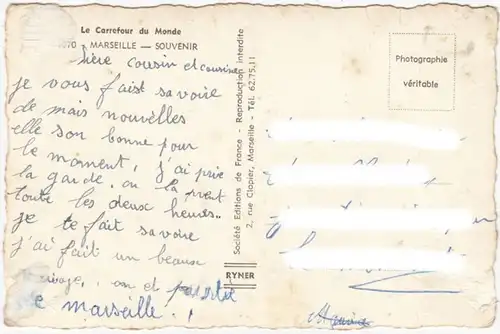 Le Carrefour du Monde
MARSEILLE — SOUVENIR
cousin et cousine
je vous faist savoire
de mais nouvelles
elle son bonne pour
le moment, j'ai prie
la garde, on la prent
toute les deux heures..
je te fait savoire
j'ai fait un beaux
on et
marseille.
Société Editions de France - Reproduction interdite
2, rue Clapier, Marseille - Tél. 62.75.11
RYNER
Photographie
véritable